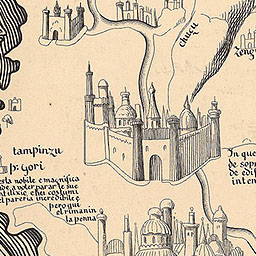 chucu
Zeng
tampinzu
p: Gori
erla nobile e magnifica
de a voler narar le sue
e chei costumi
el pareria incredibile e
pero qui
el rimanin
la penna
In que
de sopr
de edif
inten